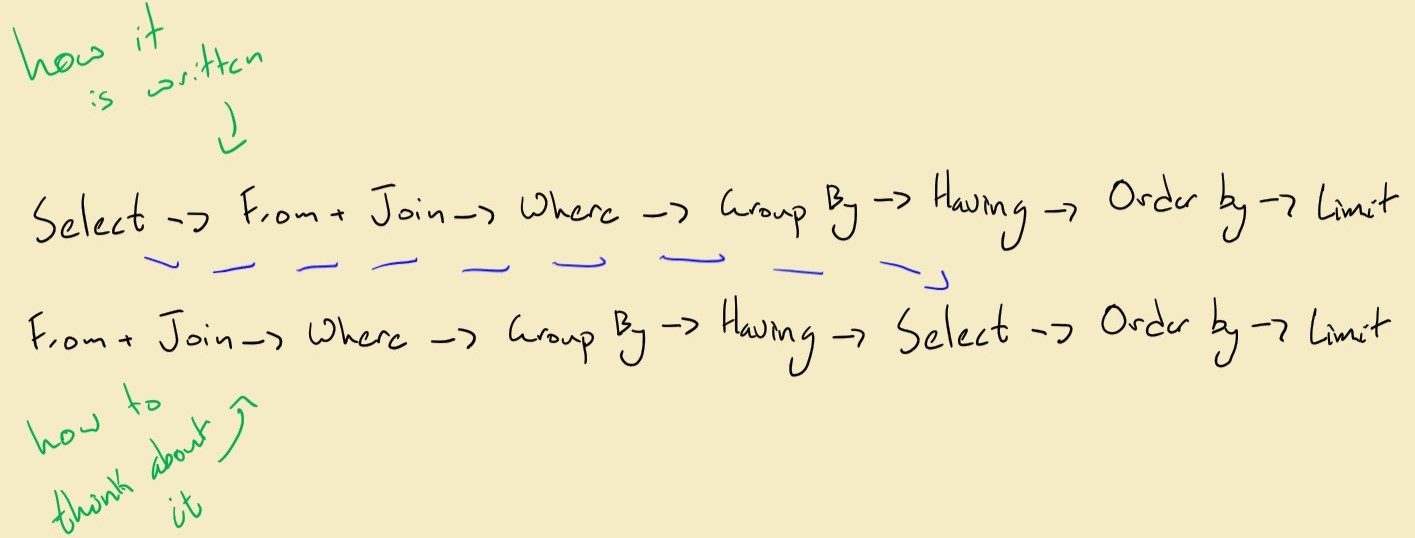 how it
is written
Select -> From + Join -> Where -> Group By -> Having -> Order by -> Limit
From + Join -> Where -> Group By -> Having -> Select -> Order by -> Limit
how to
think about
it